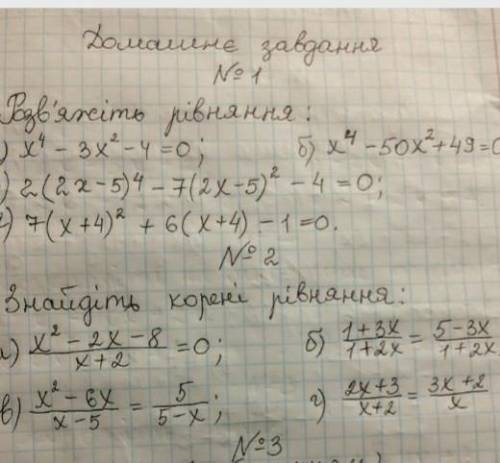 Домашнє завдання
№1
Розв'яжіть рівняння:
) x⁴ - 3x² - 4 = 0; б) x⁴ - 50x² + 49 = 0
) 2(2x-5)⁴ - 7(2x-5)² - 4 = 0;
г) 7(x+4)² + 6(x+4) - 1 = 0.
№2
Знайдіть корені рівняння:
а) (x² - 2x - 8)/(x+2) = 0; б) (1+3x)/(1+2x) = (5-3x)/(1+2x)
в) (x² - 6x)/(x-5) = 5/(5-x); г) (2x+3)/(x+2) = (3x+2)/x
№3